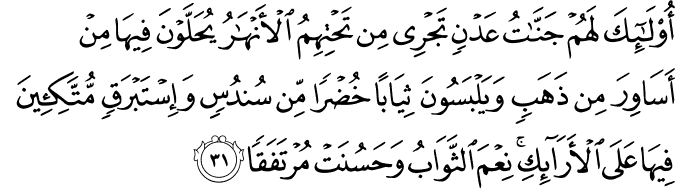 أُو۟لَـٰٓئِكَ لَهُمْ جَنَّـٰتُ عَدْنٍ تَجْرِى مِن تَحْتِهِمُ ٱلْأَنْهَـٰرُ يُحَلَّوْنَ فِيهَا مِنْ
أَسَاوِرَ مِن ذَهَبٍ وَيَلْبَسُونَ ثِيَابًا خُضْرًا مِّن سُندُسٍ وَإِسْتَبْرَقٍ مُّتَّكِـِٔينَ
فِيهَا عَلَى ٱلْأَرَآئِكِ ۚ نِعْمَ ٱلثَّوَابُ وَحَسُنَتْ مُرْتَفَقًا ٣١